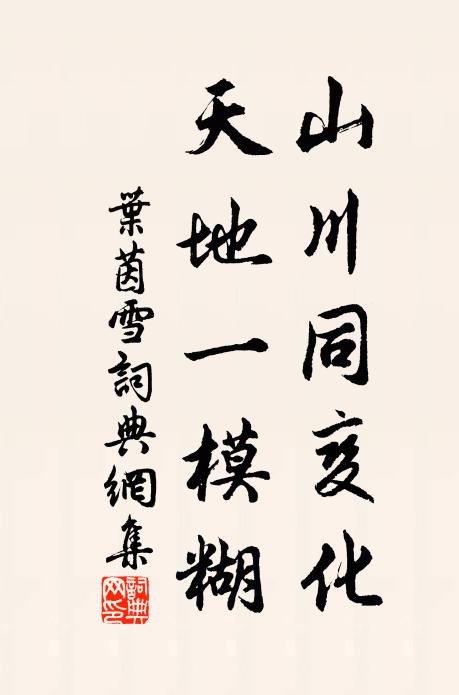 山川同变化
天地一模糊
葉茵雪詞典網集
詞典网印